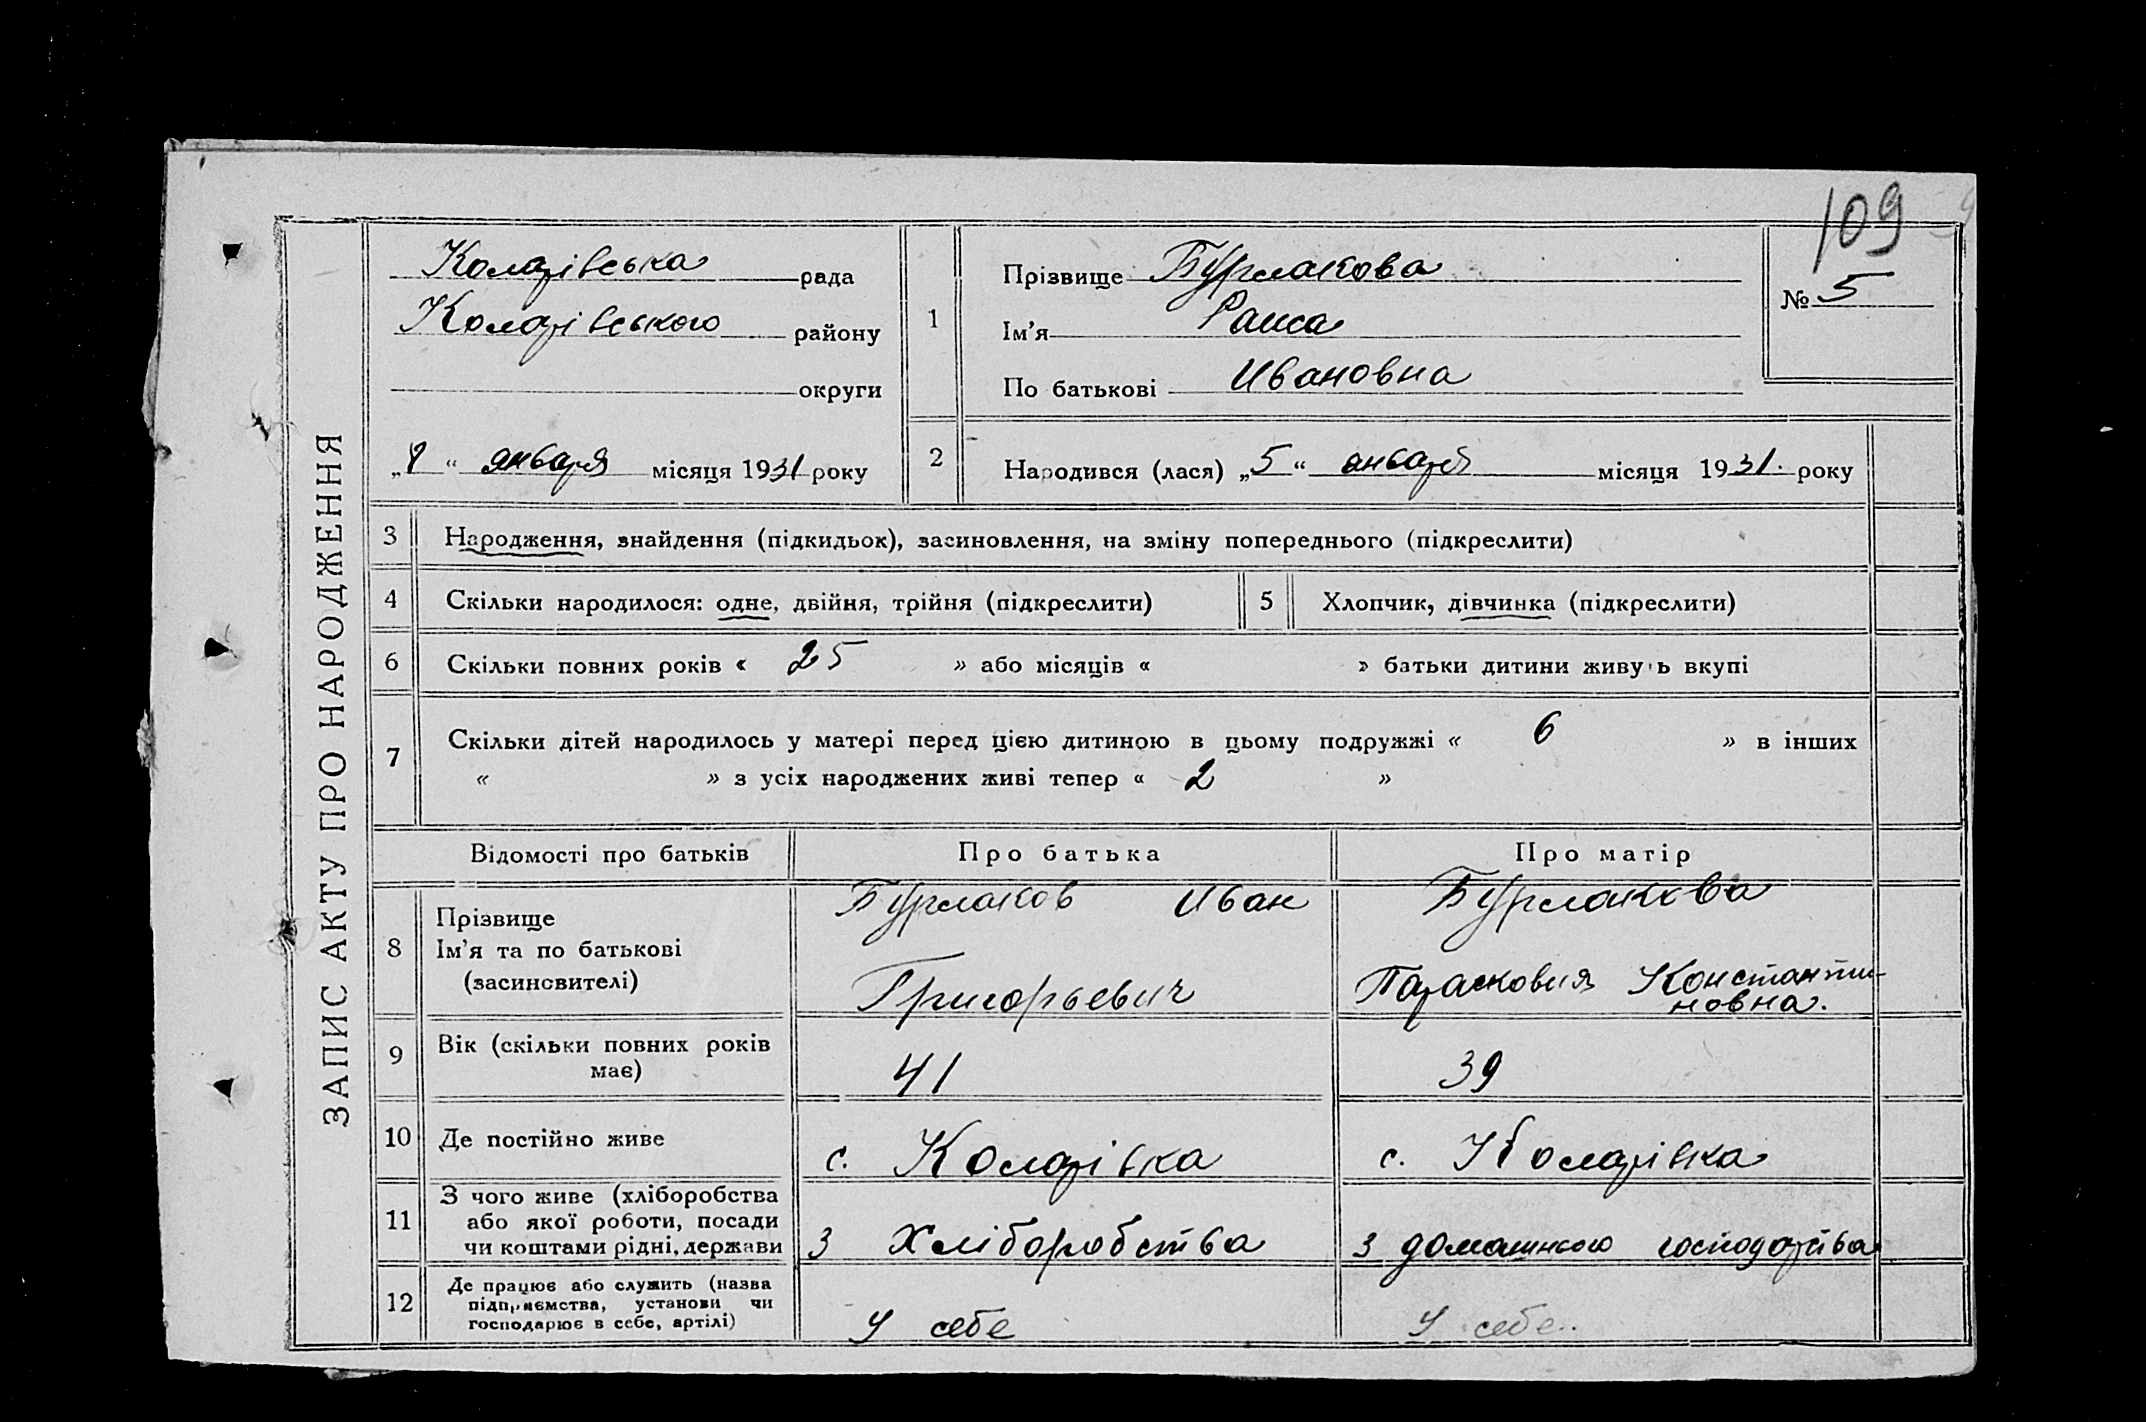 109
ЗАПИС АКТУ ПРО НАРОДЖЕННЯ
Коларівська рада
Коларівського району
округи
„8“ января місяця 1931 року
1
Прізвище Бурлакова
Ім’я Раиса
По батькові Ивановна
№ 5
2
Народився (лася) „5“ января місяця 1931. року
3 Народження, знайдення (підкидьок), засиновлення, на зміну попереднього (підкреслити)
4 Скільки народилося: одне, двійня, трійня (підкреслити)
5 Хлопчик, дівчинка (підкреслити)
6 Скільки повних років « 25 » або місяців « » батьки дитини живуть вкупі
7 Скільки дітей народилось у матері перед цією дитиною в цьому подружжі « 6 » в інших
« » з усіх народжених живі тепер « 2 »
Відомості про батьків Про батька Про матір
8
Прізвище
Ім’я та по батькові
(засиновителі)
Бурлаков Иван
Григорьевич
Бурлакова
Парасковия Константи-
новна.
9
Вік (скільки повних років
має)
41
39
10 Де постійно живе
с. Коларівка
с. Коларівка
11
З чого живе (хліборобства
або якої роботи, посади
чи коштами рідні, держави
З Хліборобства
З домашнього господарства
12
Де працює або служить (назва
підприємства, установи чи
господарює в себе, артілі)
У себе
У себе.